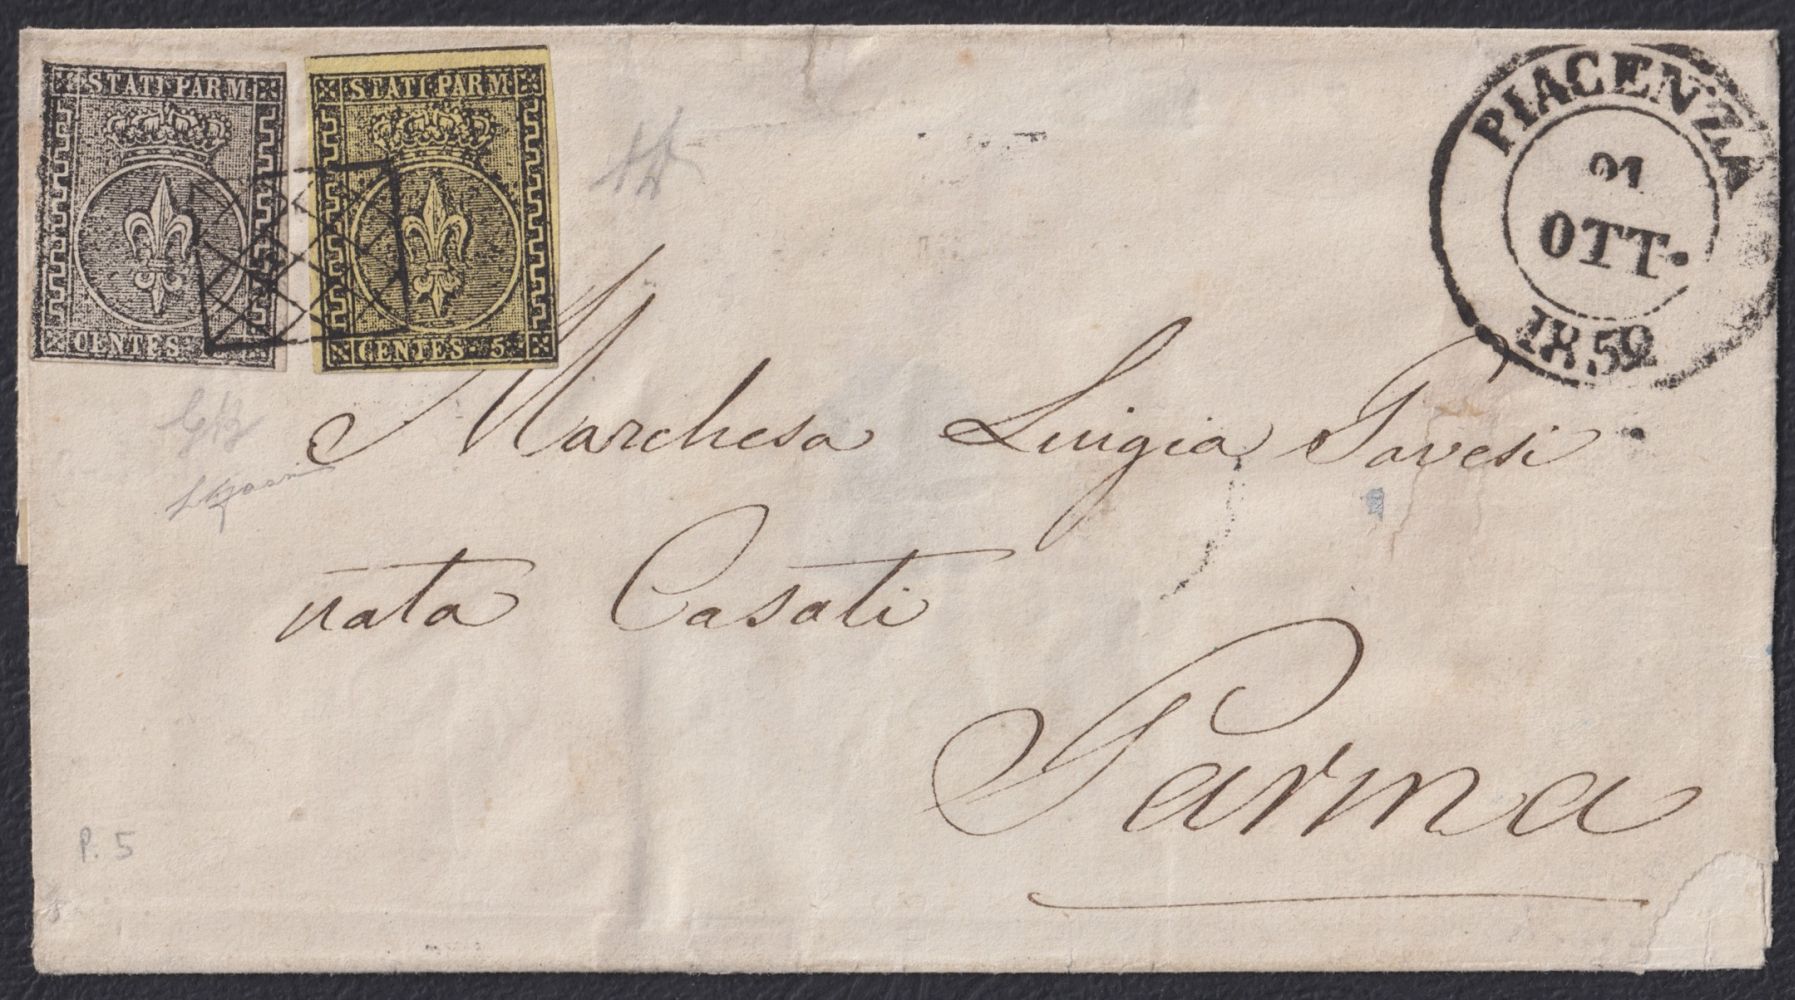 STATI PARM
CENTES
STATI PARM
CENTES. 5
PIACENZA
21
OTT.
1852
Marchesa Luigia Pavesi
nata Casati
Parma
P. 5